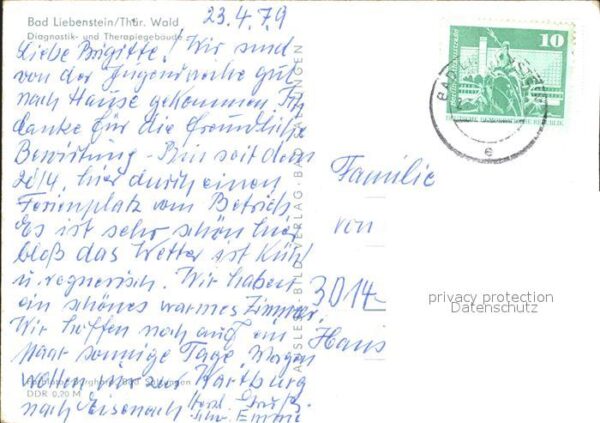 Bad Liebenstein/Thür. Wald
Diagnostik- und Therapiegebäude
23.4.79
Liebe Brigitte! Wir sind
von der Jugendweihe gut
nach Hause gekommen. Ich
danke für die freundliche
Bewirtung - Bin seit dem
20/4. hier durch einen
Ferienplatz vom Betrieb.
Es ist sehr schön hier
bloß das Wetter ist kühl
u. regnerisch. Wir haben
ein schönes warmes Zimmer.
Wir hoffen noch auf ein
Paar sonnige Tage. Morgen
wollen wir zur Wartburg
nach Eisenach
Emmi
DDR 0,20 M
AUSLESE-BILD-VERLAG · BAD
10
e
Familie
von
3014
Hans
privacy protection
Datenschutz